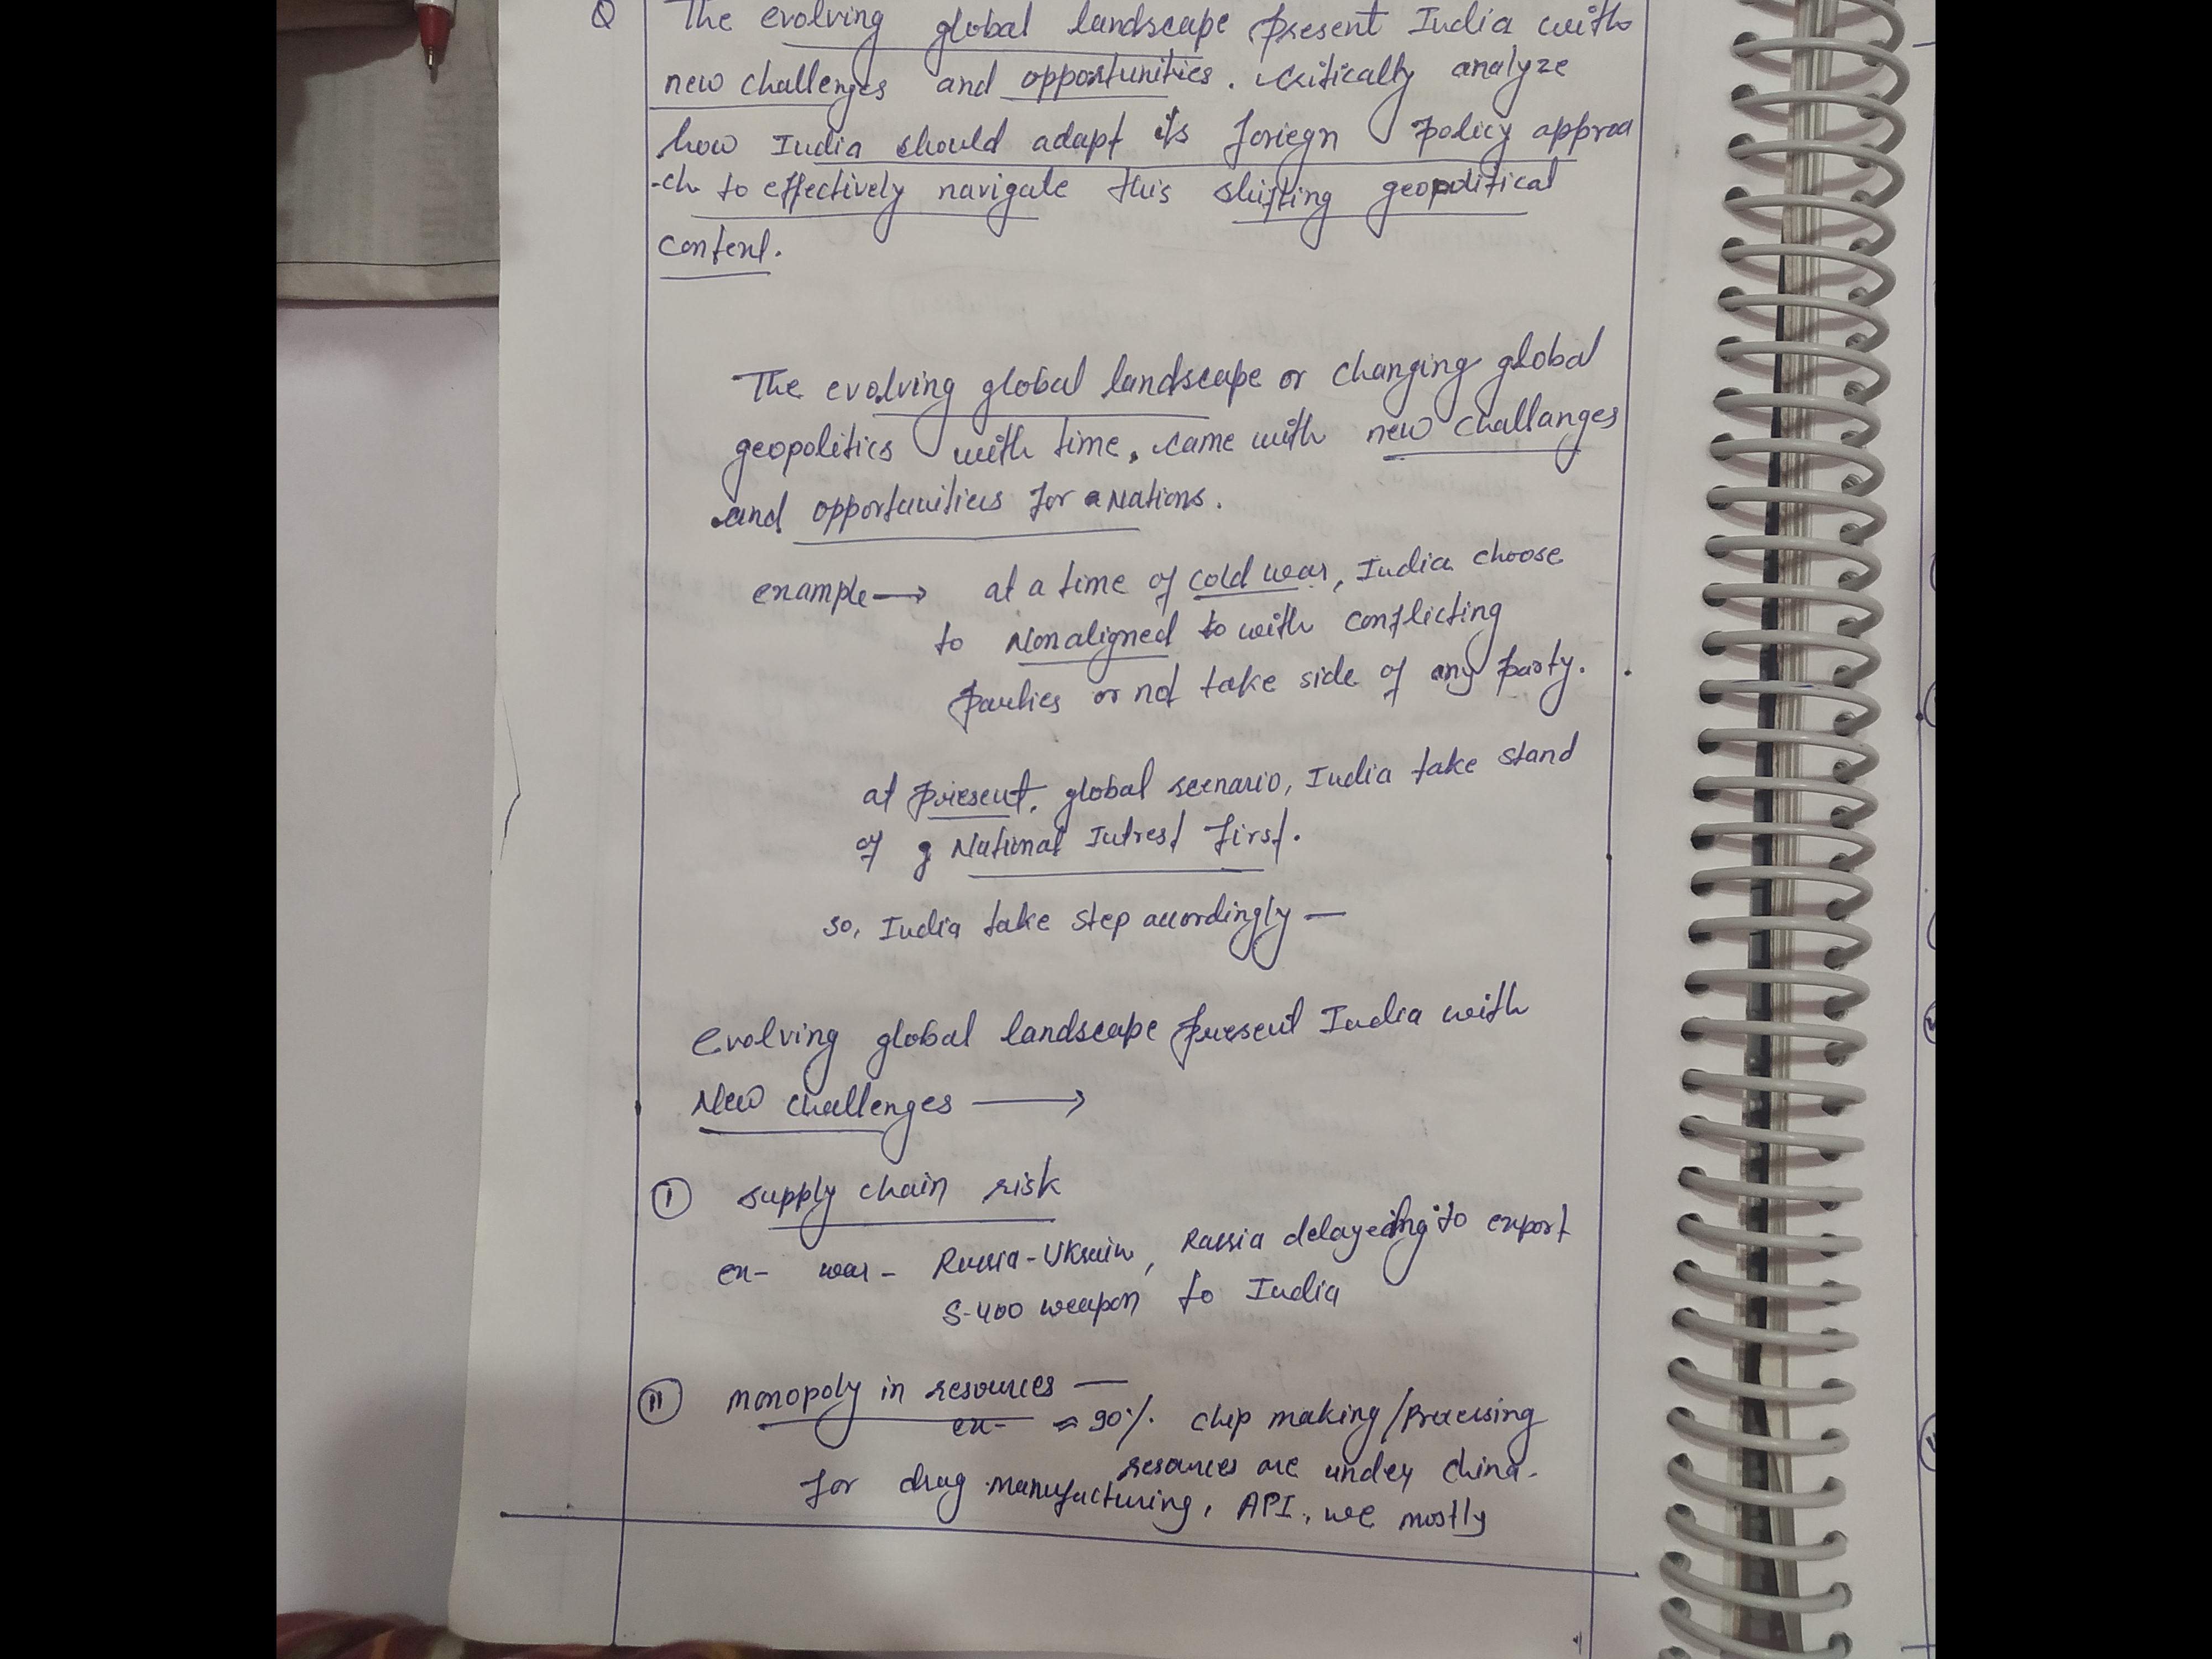 Q The evolving global landscape present India with
new challenges and opportunities. critically analyze
how India should adapt its foriegn policy approa
-ch to effectively navigate this shifting geopolitical
context.
The evolving global landscape or changing global
geopolitics with time, came with new challanges
and opportunities for a Nations.
example → at a time of cold war, India choose
to Nonaligned to with conflicting
parties or not take side of any party.
at present, global scenario, India take stand
of National Intrest first.
so, India take step accordingly —
Evolving global landscape present India with
New challenges →
I supply chain risk
ex- war - Russia-Ukrain, Russia delayeding to export
S-400 weapon to India
II monopoly in resources —
ex- ≈ 90% chip making/Processing
resources are under China.
for drug manufacturing, API, we mostly